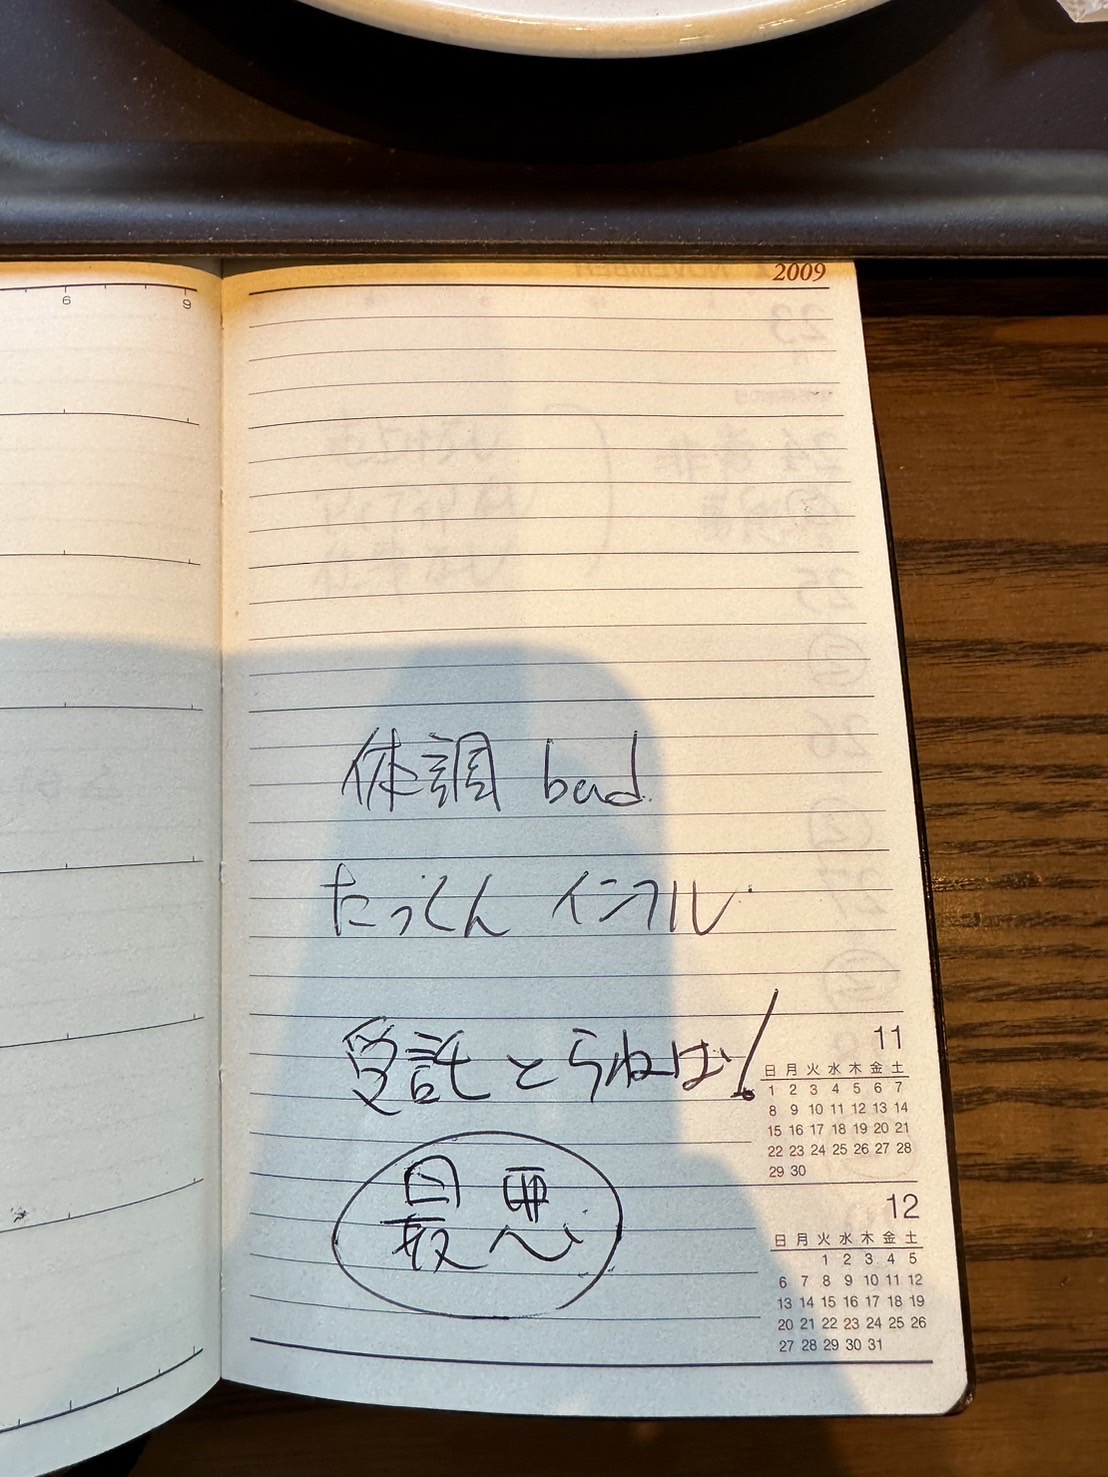 6 9
2009
体調 bad
たっくん インフル
受託とらねば!
最悪
11
日 月 火 水 木 金 土
1 2 3 4 5 6 7
8 9 10 11 12 13 14
15 16 17 18 19 20 21
22 23 24 25 26 27 28
29 30
12
日 月 火 水 木 金 土
1 2 3 4 5
6 7 8 9 10 11 12
13 14 15 16 17 18 19
20 21 22 23 24 25 26
27 28 29 30 31